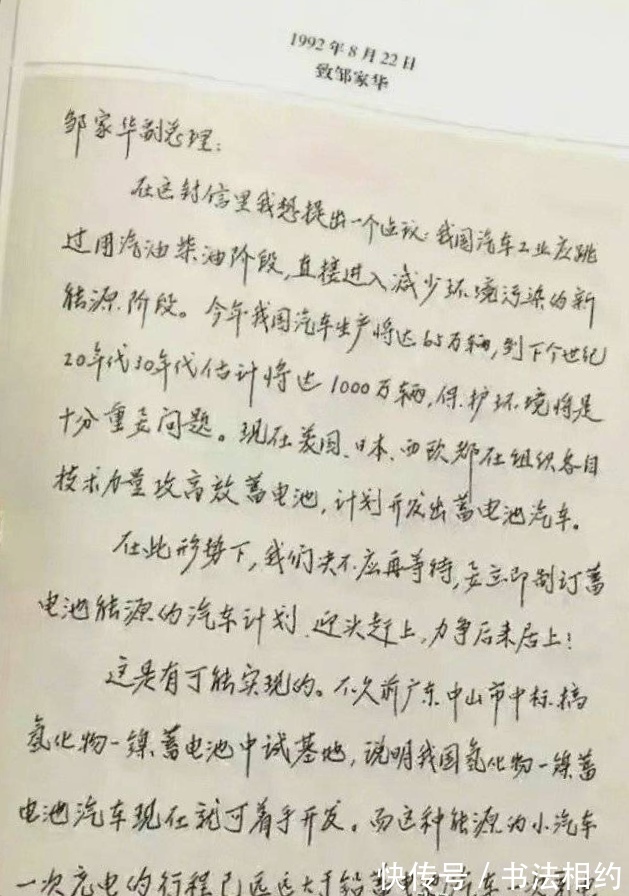 1992年8月22日
致邹家华
邹家华副总理：
在这封信里我想提出一个建议：我国汽车工业应跳
过用汽油柴油阶段，直接进入减少环境污染的新
能源阶段。今年我国汽车生产将达65万辆，到下个世纪
20年代30年代估计将达1000万辆，保护环境将是
十分重要问题。现在美国、日本、西欧都在组织各自
技术力量攻高效蓄电池，计划开发出蓄电池汽车。
在此形势下，我们决不应再等待，要立即制订蓄
电池能源的汽车计划，迎头赶上，力争后来居上！
这是有可能实现的。不久前广东中山市中标搞
氢化物—镍蓄电池中试基地，说明我国氢化物—镍蓄
电池汽车现在就可着手开发。而这种能源为小汽车
一次充电的行程已远远大于铅蓄电池汽车
快传号 / 书法相约